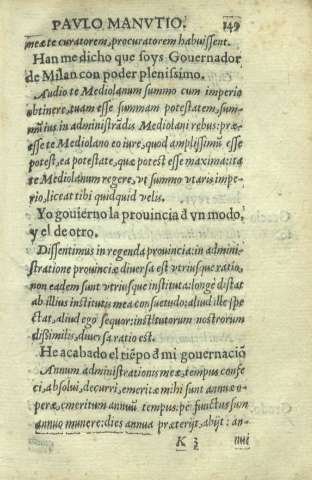 PAVLO MANVTIO. 149
meæ te curatorem, procuratorem habuissent.
Han me dicho que soys Gouernador
de Milan con poder plenissimo.
Audio te Mediolanum summo cum imperio
obtinere, tuam esse summam potestatem, sum-
mũ ius in administrãdis Mediolani rebus: præ-
esse te Mediolano eo iure, quod amplissimũ esse
potest, ea potestate, quæ potest esse maxima: ita
te Mediolanum regere, vt summo vtaris impe-
rio, liceat tibi quidquid velis.
Yo gouierno la prouincia d̃ vn modo,
y el de otro.
Dissentimus in regenda prouincia: in admini-
stratione prouinciæ diuersa est vtriusque ratio,
non eadem sunt vtriusque instituta: longè distat
ab illius institutis mea consuetudo: aliud ille spe-
ctat, aliud ego sequor: institutorum nostrorum
dissimilis, diuersa ratio est.
He acabado el tiẽpo d̃ mi gouernaciõ
Annum administrationis meæ, tempus confe
ci, absolui, decurri, emeritæ mihi sunt annuæ o-
peræ, emeritum annuũ tempus. pe functus sum
annuo munere: dies annua præterijt, abijt: an-
K 3 nui